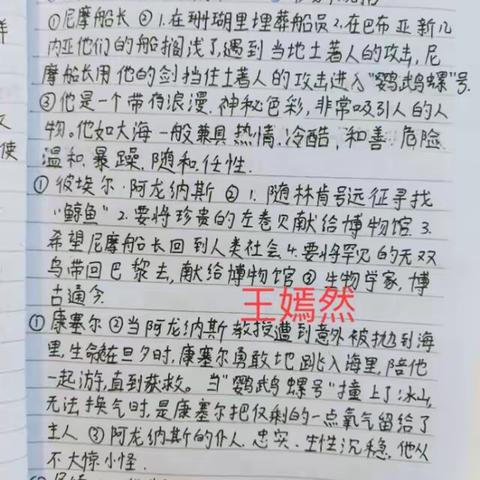 ①尼摩船长 ② 1.在珊瑚里埋葬船员 2.在巴布亚新几
内亚他们的船搁浅了,遇到当地土著人的攻击,尼
摩船长用他的剑挡住土著人的攻击进入"鹦鹉螺"号.
③他是一个带有浪漫.神秘色彩,非常吸引人的人
物。他如大海一般兼具热情.冷酷,和善.危险
温和.暴躁.随和.任性.
使
①彼埃尔·阿龙纳斯 ② 1.随林肯号远征寻找
"鲸鱼" 2.要将珍贵的左卷贝献给博物馆 3.
希望尼摩船长回到人类社会 4.要将罕见的无双
鸟带回巴黎去,献给博物馆 ③生物学家,博
古通今.
王嫣然
①康塞尔 ②当阿龙纳斯教授遭到意外被抛到海
里,生命在旦夕时,康塞尔勇敢地跳入海里,陪他
一起游,直到获救。当"鹦鹉螺号"撞上了冰山,
无法换气时,是康塞尔把仅剩的一点氧气留给了
主人 ③阿龙纳斯的仆人.忠实.生性沉稳.他从
不大惊小怪.